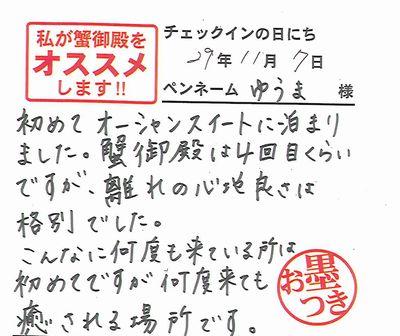 私が蟹御殿を
オススメ
します!!
チェックインの日にち
29年11月7日
ペンネーム ゆうま 様
初めてオーシャンスイートに泊まり
ました。蟹御殿は4回目くらい
ですが、離れの心地良さは
格別でした。
こんなに何度も来ている所は
初めてですが何度来ても
癒される場所です。
お墨つき